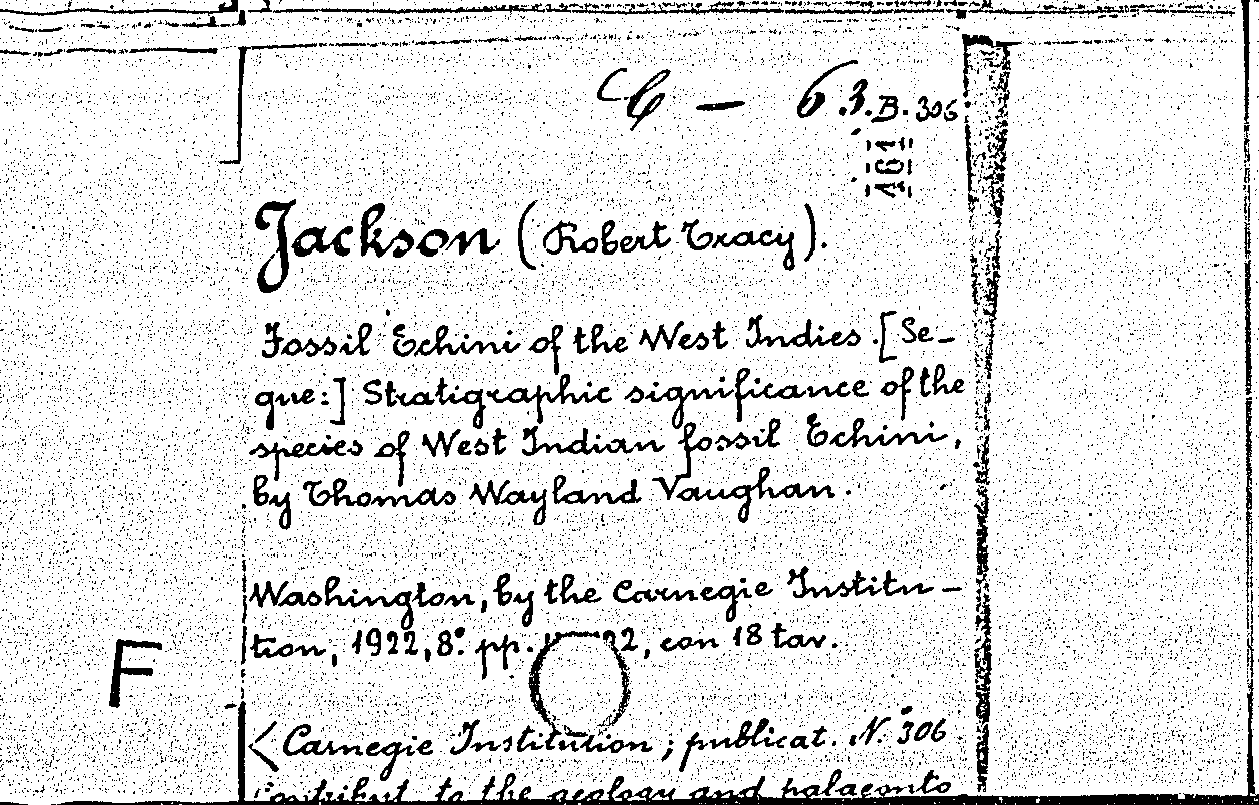 C — 63.B.306
161
Jackson (Robert Tracy).
Fossil Echini of the West Indies. [Se-
gue:] Stratigraphic significance of the
species of West Indian fossil Echini,
by Thomas Wayland Vaughan.
Washington, by the Carnegie Institu-
tion, 1922, 8.° pp. con 18 tav.
F
< Carnegie Institution; publicat. N.° 306
Contribut. to the geology and palaeonto